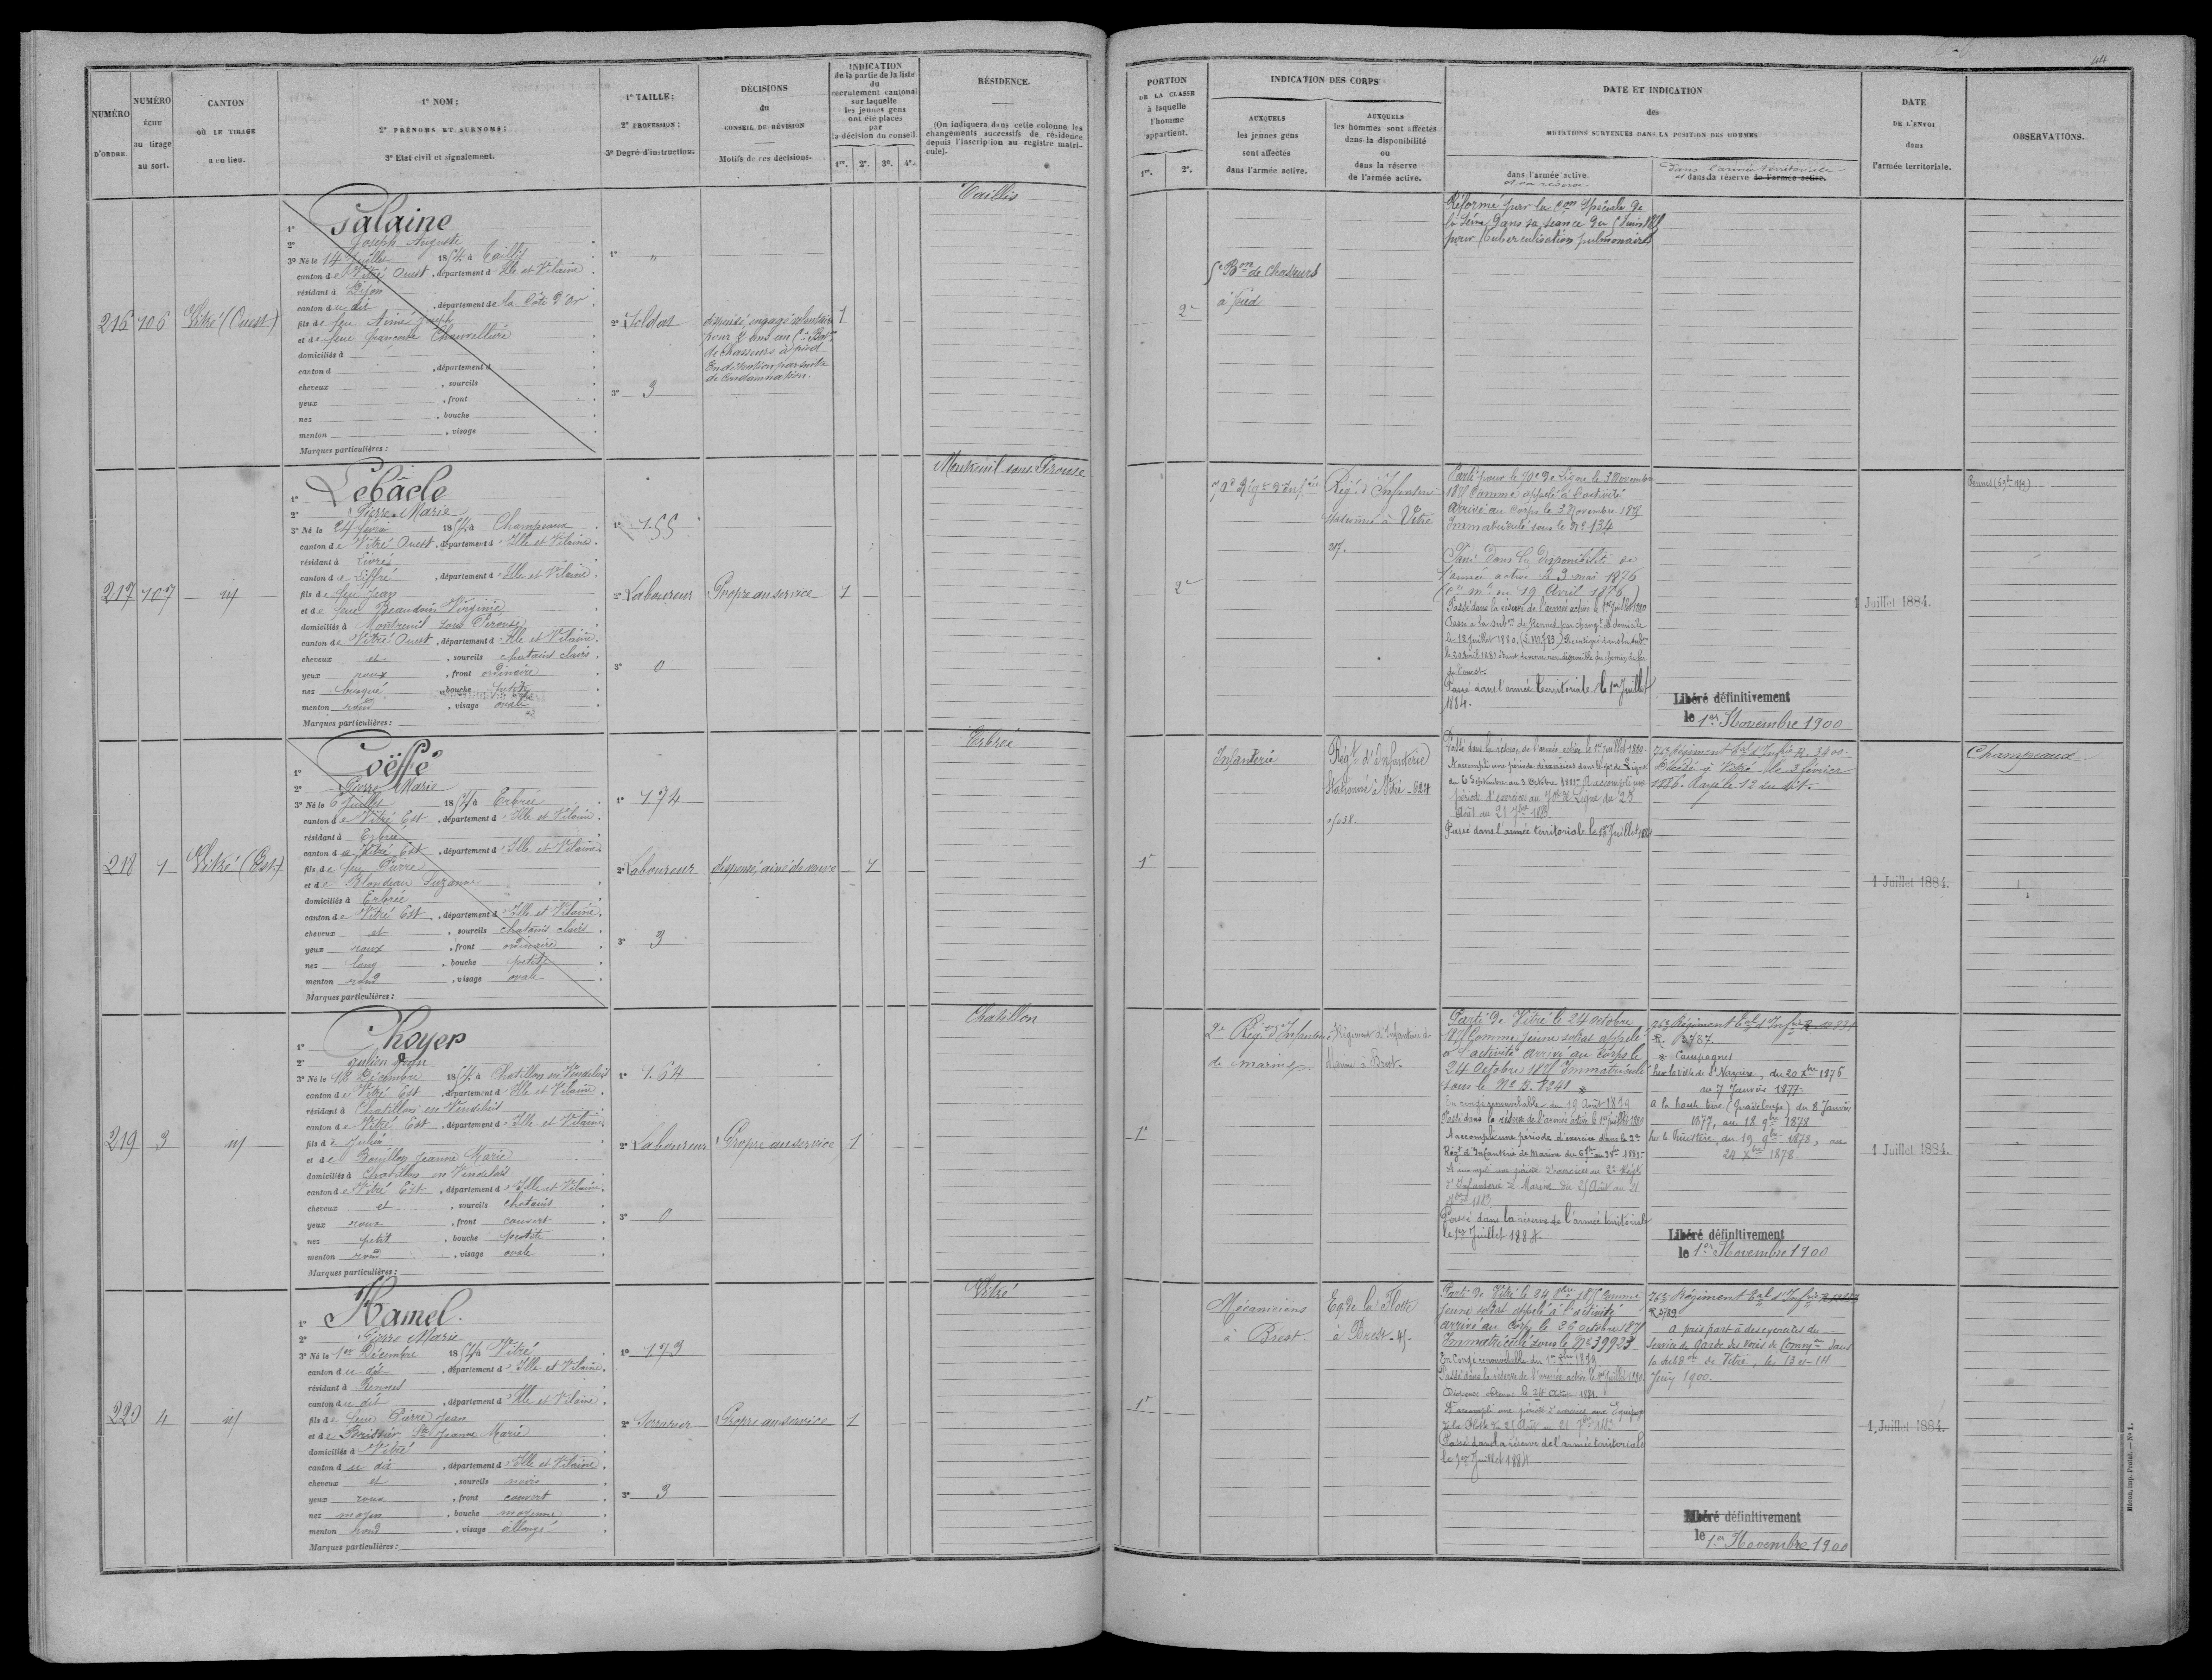 44
NUMÉRO D'ORDRE
NUMÉRO ÉCHU au tirage au sort.
CANTON OÙ LE TIRAGE a eu lieu.
1° NOM;
2° PRÉNOMS ET SURNOMS;
3° Etat civil et signalement.
1° TAILLE;
2° PROFESSION;
3° Degré d'instruction.
DÉCISIONS du CONSEIL DE RÉVISION
Motifs de ces décisions.
INDICATION
de la partie de la liste
du
recrutement cantonal
sur laquelle
les jeunes gens
ont été placés
par
la décision du conseil.
1re. 2e. 3e. 4e.
RÉSIDENCE.
(On indiquera dans cette colonne les
changements successifs de résidence
depuis l'inscription au registre matri-
cule).
PORTION
DE LA CLASSE
à laquelle
l'homme
appartient.
1re. 2e.
INDICATION DES CORPS
AUXQUELS
les jeunes gens
sont affectés
dans l'armée active.
AUXQUELS
les hommes sont affectés
dans la disponibilité
ou
dans la réserve
de l'armée active.
DATE ET INDICATION
des
MUTATIONS SURVENUES DANS LA POSITION DES HOMMES
dans l'armée active.
et sa réserve
dans l'armée territoriale
et dans sa réserve de l'armée active.
DATE
DE L'ENVOI
dans
l'armée territoriale.
OBSERVATIONS.
216 106 Vitré (Ouest)
1° Galaine
2° Joseph Auguste
3° Né le 14 Juillet 1854 à Taillis
canton de Vitré Ouest, département d'Ille et Vilaine
résidant à Dijon
canton du dit, département de la Côte d'Or
fils de feu Aimé Joseph
et de feue françoise
domiciliés à
canton d , département d
cheveux , sourcils
yeux , front
nez , bouche
menton , visage
Marques particulières :
1° "
2° Soldat
3° 3
dispensé, engagé volontaire
pour 2 ans au 5e Bon
de Chasseurs à pied
En détention par suite
de Condamnation.
1
Taillis
2e
5e Bon de Chasseurs
à pied
Réformé par la Com Spéciale de
la Seine dans sa séance du 5 Juin
pour tuberculisation pulmonaire
217 107 id
1° Lebâcle
2° Pierre Marie
3° Né le 24 février 1854 à Champeaux
canton de Vitré Ouest, département d'Ille et Vilaine
résidant à Livré
canton de Liffré, département d'Ille et Vilaine
fils de feu Jean
et de feue Beaudoin Virginie
domiciliés à Montreuil sous Pérouse
canton de Vitré Ouest, département d'Ille et Vilaine
cheveux et, sourcils chatains clairs
yeux roux, front ordinaire
nez busqué, bouche petite
menton rond, visage ovale
Marques particulières :
1° 1.55
2° Laboureur
3° 0
Propre au service
1
Montreuil sous Pérouse
2e
70e Régt d'Infie
Régt d'Infanterie
stationné à Vitré
217.
Parti pour le 70e de Ligne le 3 Novembre
1875 Comme appelé à l'activité
arrivé au Corps le 3 Novembre 1875
Immatriculé sous le No 134
Passé dans la disponibilité de
l'armée active le 3 mai 1876
(Cre Mlle du 19 Avril 1876)
Passé dans la réserve de l'armée active le 1er Juillet 1880
Passé à la subon de Rennes par changt de domicile
le 12 Juillet 1880. Réintégré dans la subon
le 20 Avril 1881 étant devenu non disponible du chemin de fer
de l'ouest.
Passé dans l'armée territoriale le 1er Juillet
1884.
Libéré définitivement
le 1er Novembre 1900
1 Juillet 1884.
218 1 Vitré (Est)
1° Coëffé
2° Pierre Marie
3° Né le 6 Juillet 1854 à Erbrée
canton de Vitré Est, département d'Ille et Vilaine
résidant à Erbrée
canton de Vitré Est, département d'Ille et Vilaine
fils de feu Pierre
et de Blondeau Suzanne
domiciliés à Erbrée
canton de Vitré Est, département d'Ille et Vilaine
cheveux et, sourcils chatains clairs
yeux roux, front ordinaire
nez long, bouche petite
menton rond, visage ovale
Marques particulières :
1° 1.74
2° Laboureur
3° 3
dispensé, ainé de veuve
1
Erbrée
1e
Infanterie
Régt d'Infanterie
Stationné à Vitré - 624
Passé dans la réserve de l'armée active le 1er juillet 1880.
A accompli une période d'exercices dans le 70e de Ligne
du 6 Septembre au 3 Octobre 1881. A accompli une
période d'exercices au 70e de Ligne du 25
Août au 21 7bre 1883.
Passé dans l'armée territoriale le 1er Juillet 1884
76e Régiment Tal d'Infie R. 3400.
Décédé à Vitré le 3 février
1886. Rayé le 12 du dit.
1 Juillet 1884.
Champeaux
219 3 id
1° Choyer
2° Julien Jean
3° Né le 12 Décembre 1854 à Chatillon en Vendelais
canton de Vitré Est, département d'Ille et Vilaine
résidant à Chatillon en Vendelais
canton de Vitré Est, département d'Ille et Vilaine
fils de Julien
et de Bouillon Jeanne Marie
domiciliés à Chatillon en Vendelais
canton de Vitré Est, département d'Ille et Vilaine
cheveux et, sourcils chatains
yeux roux, front couvert
nez petit, bouche petite
menton rond, visage ovale
Marques particulières :
1° 1.64
2° Laboureur
3° 0
Propre au service
1
Chatillon
1e
2e Régt d'Infanterie
de marine
Régiment d'Infanterie de
Marine à Brest.
Parti de Vitré le 24 octobre
1875 Comme jeune soldat appelé
à l'activité arrivé au Corps le
24 Octobre 1875 Immatriculé
sous le No B. 1241
En congé renouvelable du 19 Août 1879
Passé dans la réserve de l'armée active le 1er juillet 1880
A accompli une période d'exercices dans le 2e
Régt d'Infanterie de Marine du 6 7bre au 3 8bre 1881.
A accompli une période d'exercices au 2e Régt
d'Infanterie de Marine du 25 Août au 21
7bre 1883
Passé dans la réserve de l'armée territoriale
le 1er Juillet 1884.
76e Régiment Tal d'Infie
R. 2787.
Campagnes
Sur la Ville de St Nazaire, du 20 Xbre 1876
au 7 Janvier 1877.
A la basse terre (Guadeloupe) du 8 Janvier
1877, au 18 9bre 1878
Sur le Finistère, du 19 9bre 1878, au
24 Xbre 1878.
Libéré définitivement
le 1er Novembre 1900
1 Juillet 1884.
220 4 id
1° Hamel
2° Pierre Marie
3° Né le 1er Décembre 1854 à Vitré
canton du dit, département d'Ille et Vilaine
résidant à Rennes
canton du dit, département d'Ille et Vilaine
fils de feu Pierre Jean
et de Jeanne Marie
domiciliés à Vitré
canton du dit, département d'Ille et Vilaine
cheveux et, sourcils noirs
yeux roux, front couvert
nez moyen, bouche moyenne
menton rond, visage allongé
Marques particulières :
1° 1.73
2° Serrurier
3° 3
Propre au service
1
Vitré
1e
Mécaniciens
à Brest
Eq. de la Flotte
à Brest
Parti de Vitré le 24 8bre 1875 Comme
jeune soldat appelé à l'activité
arrivé au Corps le 26 octobre 1875
Immatriculé sous le No 39923
En Congé renouvelable du 1er 1879
Passé dans la réserve de l'armée active le 1er Juillet 1880.
A accompli une période d'exercices aux Equipages
de la Flotte du 25 Août au 21 7bre 1883
Passé dans la réserve de l'armée territoriale
le 1er Juillet 1884
76e Régiment Tal d'Infie
A pris part à des exercices du
Service de Garde des Voies de Comonon dans
la subdon de Vitré, les 13 et 14
Juin 1900.
Libéré définitivement
le 1er Novembre 1900
1 Juillet 1884.
Mâcon, imp. Protat. — No 1.